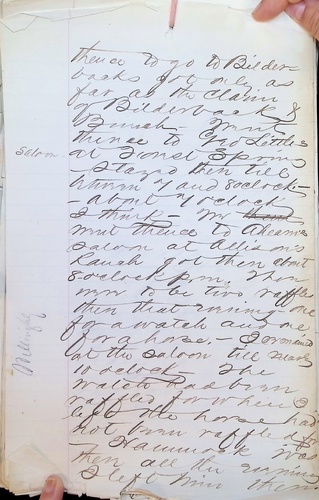 thence to go to Bilder-
backs got only as
far as the claim
of Bilderback &
Brunch - Went
thence to Geo Settles
at Forest Springs
Saloon
- Stayed there till
between 7 and 8 oclock -
- about 7 oclock
I think - We
went thence to
Saloon at Allison's
Ranch got there about
8 oclock p.m. There
were to be two raffles
there that evening - one
for a watch and one
for a horse. - I remained
at the saloon till nearly
10 oclock - The
watch had been
raffled for when I
left the horse had
not been raffled for
- Hammock was
there all the evening
I left him there